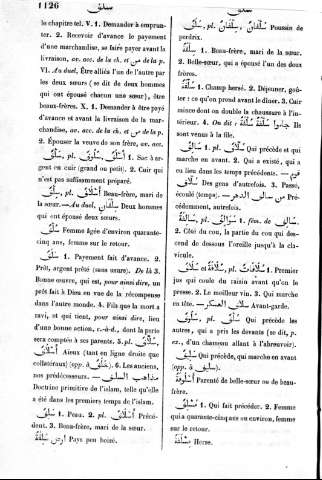 1126
سلف
سلف
le chapitre tel. V. 1. Demander à emprun-
ter. 2. Recevoir d'avance le payement
d'une marchandise, se faire payer avant la
livraison, av. acc. de la ch. et من de la p.
VI. Au duel, Être alliés l'un de l'autre par
les deux sœurs (se dit de deux hommes
qui ont épousé chacun une sœur), être
beaux-frères. X. 1. Demander à être payé
d'avance et avant la livraison de la mar-
chandise, av. acc. de la ch. et من de la p.
2. Épouser la veuve de son frère, av. acc.
سَلْفٌ, pl. أَسْلُفٌ, سُلُوفٌ 1. Sac à ar-
gent en cuir (grand ou petit). 2. Cuir qui
n'est pas suffisamment préparé.
سِلْفٌ, pl. أَسْلَافٌ Beau-frère, mari de
la sœur.—Au duel, سِلْفَانِ Deux hommes
qui ont épousé deux sœurs.
Femme âgée d'environ quarante-
cinq ans, femme sur le retour.
سَلَفٌ 1. Payement fait d'avance. 2.
Prêt, argent prêté (sans usure). De là 3.
Bonne œuvre, qui est, pour ainsi dire, un
prêt fait à Dieu en vue de la récompense
dans l'autre monde. 4. Fils que la mort a
ravi, et qui tient, pour ainsi dire, lieu
d'une bonne action, c.-à-d., dont la perte
sera comptée à ses parents. 5. pl. سُلَّافٌ,
أَسْلَافٌ Aïeux (tant en ligne droite que
collatéraux) (opp. à خَلَفٌ). 6. Les anciens,
nos prédécesseurs. — مذاهب السلف
Doctrine primitive de l'islam, telle qu'elle
a été dans les premiers temps de l'islam.
سَلِفٌ 1. Peau. 2. pl. أَسْلَافٌ Précé-
dent. 3. Beau-frère, mari de la sœur.
أرض سَلِفَةٌ Pays peu boisé.
سُلَفٌ, pl. سِلْفَانٌ, سُلْفَانٌ Poussin de
perdrix.
سِلْفَةٌ 1. Beau-frère, mari de la sœur.
2. Belle-sœur, qui a épousé l'un des deux
frères.
سُلْفَةٌ 1. Champ hersé. 2. Déjeuner, goû-
ter : ce qu'on prend avant le dîner. 3. Cuir
mince dont on double la chaussure à l'in-
térieur. 4. On dit : جاءوا سُلْفَةً سُلْفَةً Ils
sont venus à la file.
سَالِفٌ, pl. سُلَّافٌ Qui précède et qui
marche en avant. 2. Qui a existé, qui a
eu lieu dans les temps précédents. —
Des gens d'autrefois. 3. Passé,
écoulé (temps). — من سالف الدهر Pré-
cédemment, autrefois.
سَالِفَةٌ, pl. سَوَالِفُ 1. fém. de سالف.
2. Côté du cou, la partie du cou qui des-
cend de dessous l'oreille jusqu'à la cla-
vicule.
سُلَافٌ et سُلَافَةٌ, pl. سُلَافَاتٌ 1. Premier
jus qui coule du raisin avant qu'on le
presse. 2. Le meilleur vin. 3. Qui marche
en tête. — سلاف العسكر Avant-garde.
سَلُوفٌ, pl. سُلُفٌ Qui précède les
autres, qui a pris les devants (se dit, p.
ex., d'un chameau allant à l'abreuvoir).
سَلِيفٌ Qui précède, qui marche en avant
(opp. à سابق).
أُسْلُوفَةٌ Parenté de belle-sœur ou de beau-
frère.
مُسْلِفٌ 1. Qui fait précéder. 2. Femme
qui a quarante-cinq ans ou environ, femme
sur le retour.
مِسْلَفَةٌ Herse.